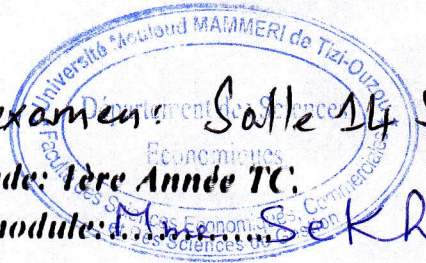 Université Mouloud MAMMERI de Tizi-Ouzou
Département des Sciences
Economiques
Faculté des Sciences Economiques, Commerciales
et des Sciences de Gestion
examen: Salle 14
de: 1ère Année TC.
module: Mme SeKh